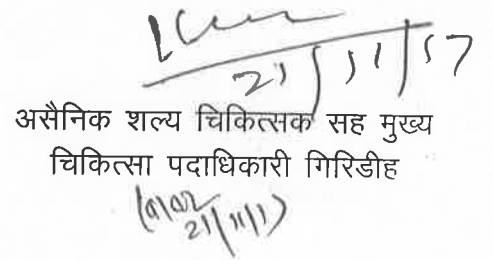 21/11/17
असैनिक शल्य चिकित्सक सह मुख्य
चिकित्सा पदाधिकारी गिरिडीह
21/11/17